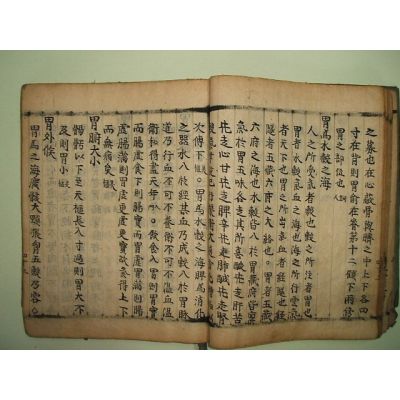 之募也在心蔽骨與臍之中上下各四
寸在背則胃俞在脊第十二顀下兩傍
胃之部位也
胃爲水穀之海
人之所受氣者穀也穀之所注者胃也
胃者水穀氣血之海也海之所行雲氣
者天下也胃之所出氣血者經隧也經
隧者五藏六府之大絡也 胃者五藏
六府之海也水穀皆入於胃五藏六府皆稟
氣於胃五味各走其所喜酸先走肝苦
先走心甘先走脾辛先走肺鹹先走腎
次傳下 胃爲水穀之海脾爲消化
之器水入於經其血乃成穀入於胃脉
道乃行血不可不養衛不可不温血温
衛和得盡天年 飮食入胃則胃實
而腸虛食下則腸實而胃虛胃滿則腸
虛腸滿則胃虛更虛更實故氣得上下
而無病矣
胃腑大小
𩩲骬以下至天樞長八寸過則胃大不
及則胃小
胃外候
胃爲之海廣骸大頸張胷五穀乃容